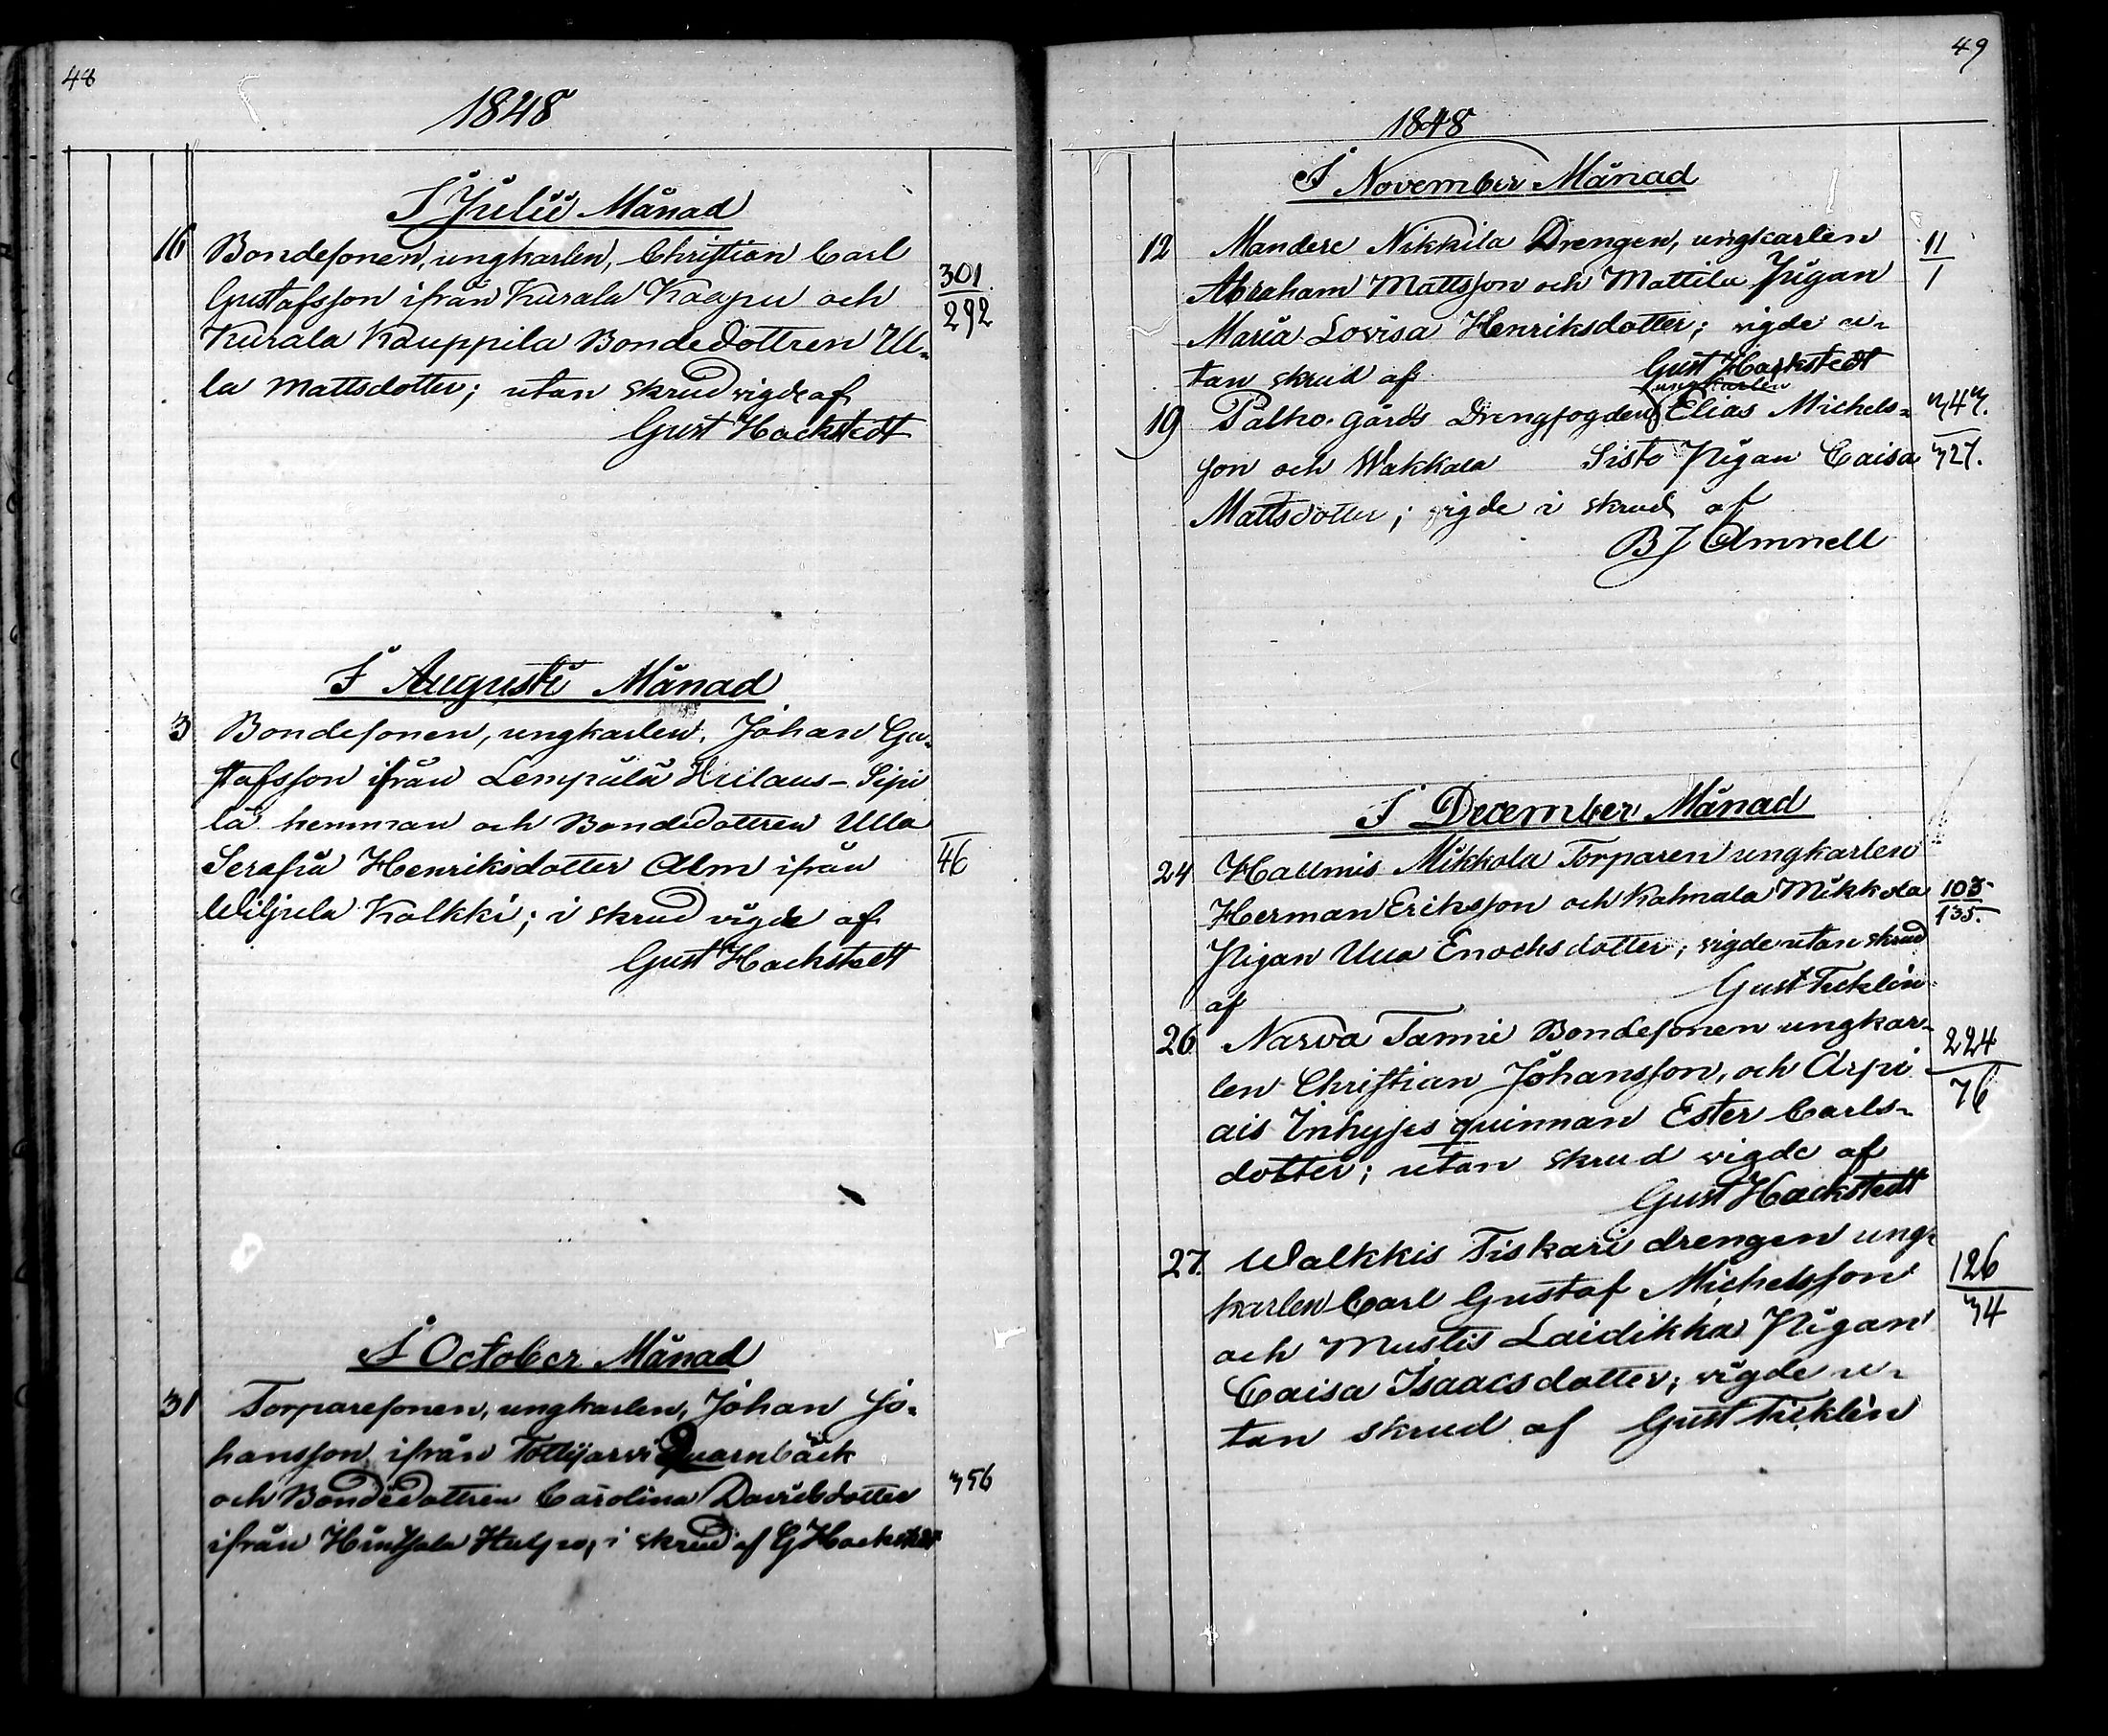 48
1848
I Julii Månad
16 Bondesonen, ungkarlen, Christian Carl
Gustafsson ifrån Kurala Kaapu och 301
Kurala Kauppila Bondedottren Ul- 292
la Mattsdotter; utan skrud vigde af
Gust Hackstedt
I Augusti Månad
3 Bondesonen, ungkarlen, Johan Gu-
stafsson ifrån Lempälä Hulaus-Sipi
lä hemman och Bondedottren Ulla
Serafia Henriksdotter Alm ifrån 46
Wiljula Kalkki; i skrud vigde af
Gust Hackstedt
I October Månad
31 Torparesonen, ungkarlen, Johan Jo-
hansson ifrån Tottijärvi Quarnbäck
och Bondedottren Carolina Davidsdotter 356
ifrån Hinsala Hulpo, i skrud af G Hackstedt
49
1848
I November Månad
12 Mandere Nikkila Drengen, ungkarlen 11
Abraham Mattsson och Mattila Pigan 1
Maria Lovisa Henriksdotter; vigde u-
tan skrud af Gust Hackstedt
ungkarlen
19 Palho gårds Drengfogden Elias Michels- 347.
son och Wakkala Sisto Pigan Caisa 327.
Mattsdotter; vigde i skrud af
BJ Amnell
I December Månad
24 Hallmis Mikkola Torparen ungkarlen
Herman Eriksson och Kahnala Mikkola 103
135.
Pigan Ulla Enochsdotter; vigde utan skrud
af Gust Ticklén
26 Narva Tanni Bondesonen ungkar- 224
len Christian Johansson, och Arpi 76
ais Inhyses quinnan Ester Carls-
dotter; utan skrud vigde af
Gust Hackstedt
27. Walkkis Tiskari drengen ung-
karlen Carl Gustaf Michelsson 126
och Mustis Laidikka Pigan 34
Caisa Isaacsdotter; vigde u-
tan skrud af Gust Ticklén